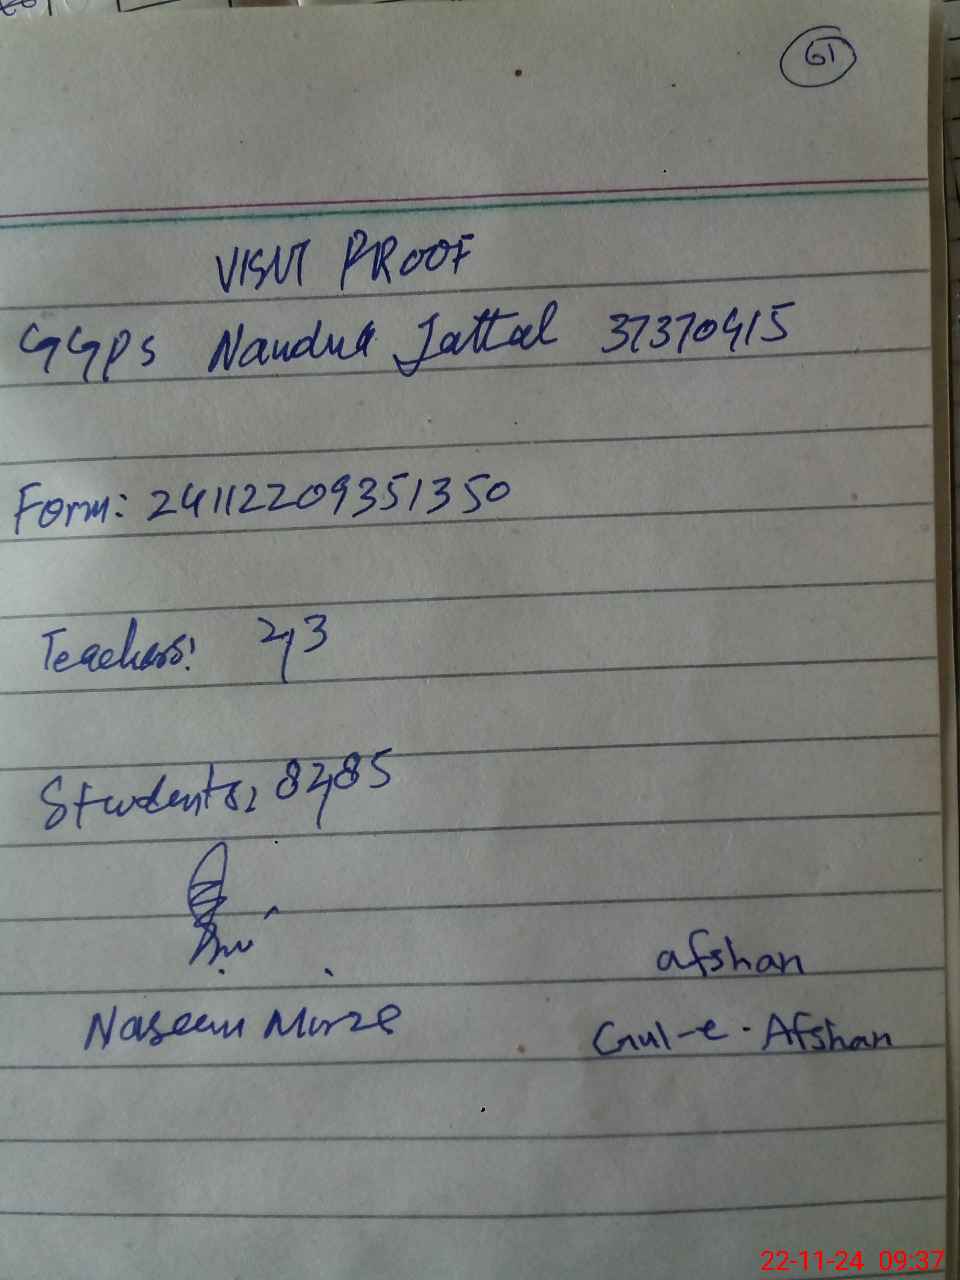 61
VISIT PROOF
GGPS Nandna Jattal 37370415
Form: 24112209351350
Teachers: 2,3
Students, 82,85
Naseem Mirza
afshan
Gul-e-Afshan
22-11-24 09:37